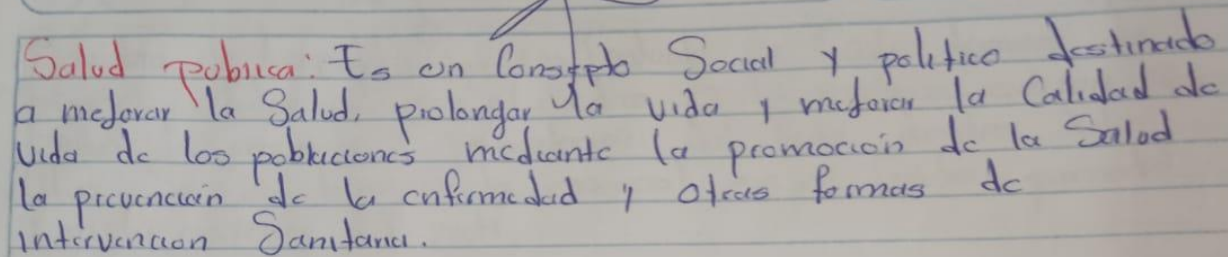 Salud pública: Es un Concepto Social y político destinado
a mejorar la Salud, prolongar la vida y mejorar la Calidad de
vida de los poblaciones mediante la promoción de la Salud
la prevención de la enfermedad y otras formas de
intervención Sanitaria.